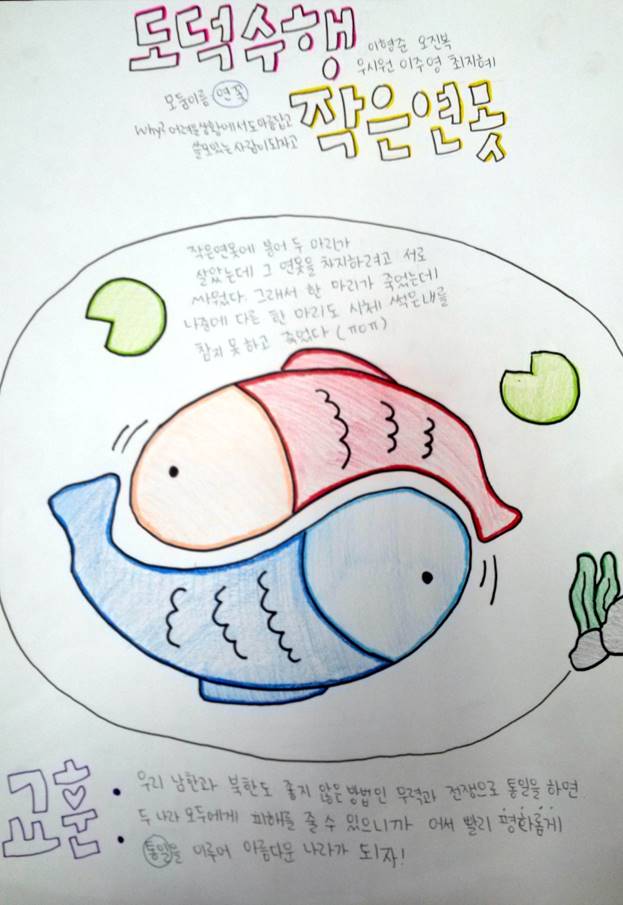 도덕수행
이형준 오진복
우시원 이주영 최지혜
모둠이름 연꽃
작은연못
Why? 어려운상황에서도아름답고
쓸모있는사람이되자고
작은연못에 붕어 두 마리가
살았는데 그 연못을 차지하려고 서로
싸웠다. 그래서 한 마리가 죽었는데
나중에 다른 한 마리도 시체 썩은내를
참지못하고 죽었다 (ㅠㅁㅠ)
교훈
우리 남한과 북한도 좋지 않은 방법인 무력과 전쟁으로 통일을 하면
두 나라 모두에게 피해를 줄 수 있으니까 어서 빨리 평화롭게
통일을 이루어 아름다운 나라가 되자!